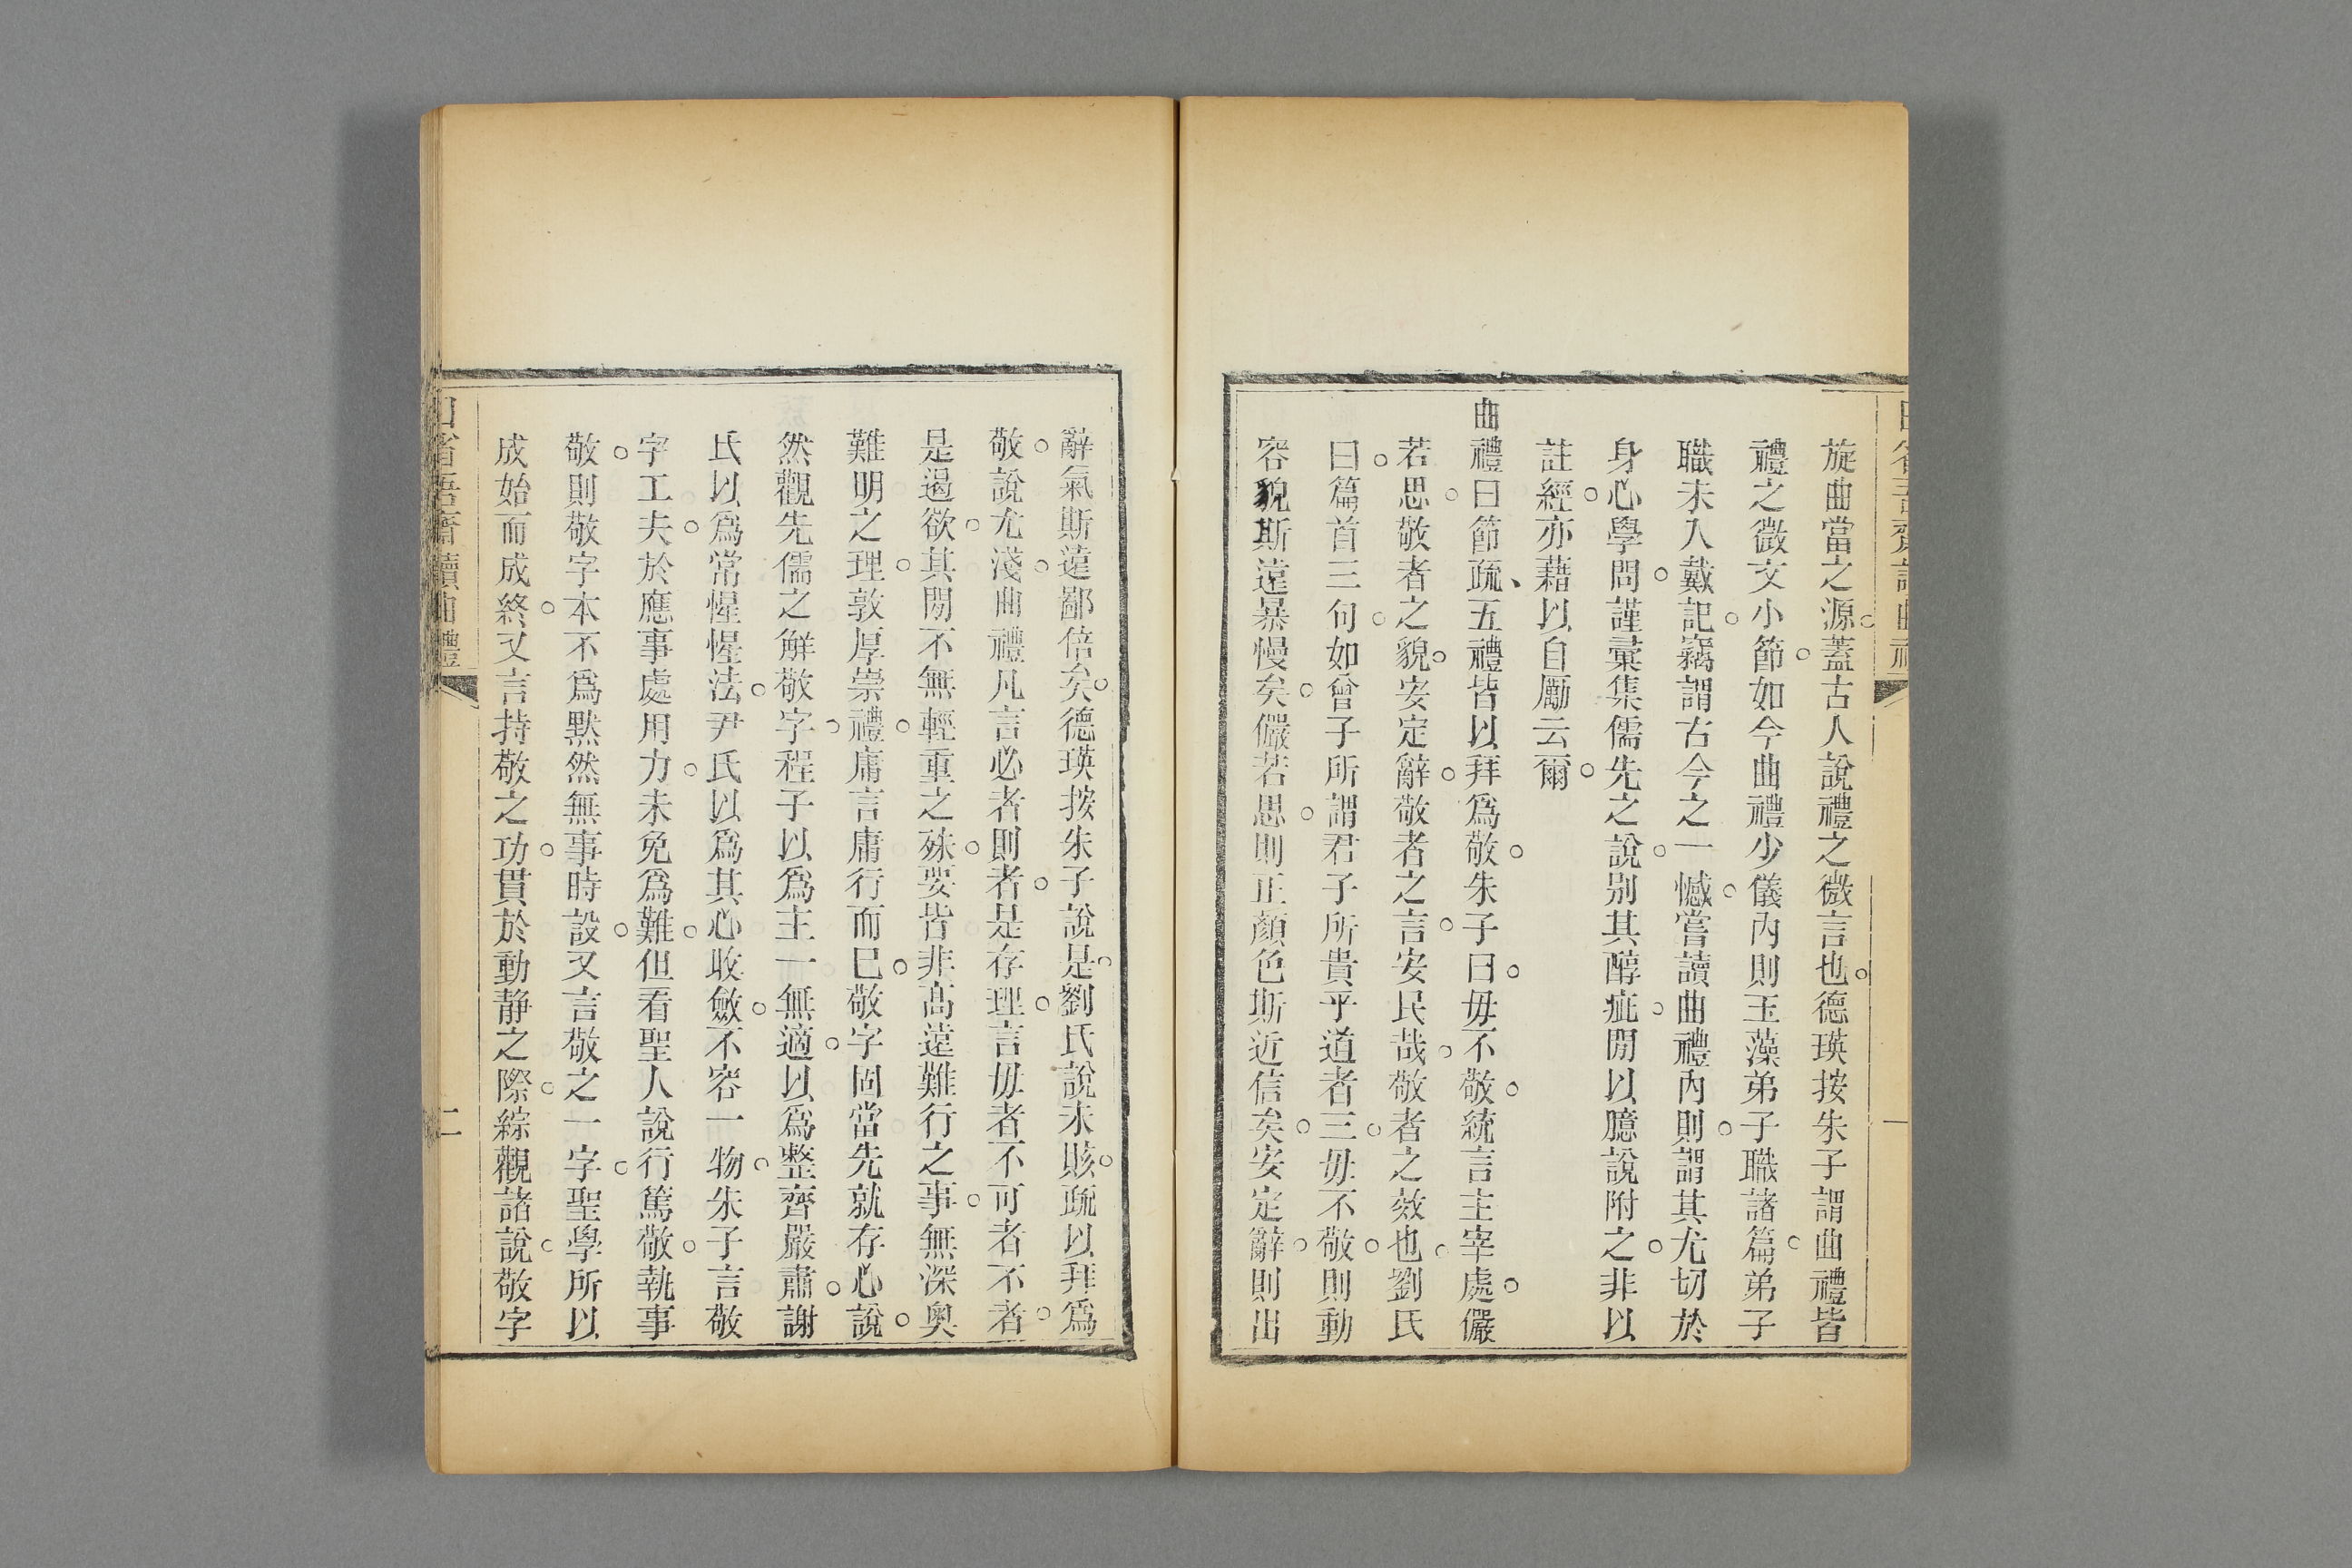 旋曲當之源蓋古人說禮之微言也德瑛按朱子謂曲禮皆
禮之微文小節如今曲禮少儀內則玉藻弟子職諸篇弟子
職未入戴記竊謂古今之一憾嘗讀曲禮內則謂其尤切於
身心學問謹彙集儒先之說别其醇疵閒以臆說附之非以
註經亦藉以自勵云爾
曲禮曰節疏五禮皆以拜爲敬朱子曰毋不敬統言主宰處儼
若思敬者之貌安定辭敬者之言安民哉敬者之效也劉氏
曰篇首三句如曾子所謂君子所貴乎道者三毋不敬則動
容貌斯遠暴慢矣儼若思則正顏色斯近信矣安定辭則出
辭氣斯遠鄙倍矣德瑛按朱子說是劉氏說未賅疏以拜爲
敬說尤淺曲禮凡言必者則者是存理言毋者不可者不者
是遏欲其閒不無輕重之殊要皆非高遠難行之事無深奧
難明之理敦厚崇禮庸言庸行而已敬字固當先就存心說
然觀先儒之解敬字程子以爲主一無適以爲整齊嚴肅謝
氏以爲常惺惺法尹氏以爲其心收斂不容一物朱子言敬
字工夫於應事處用力未免爲難但看聖人說行篤敬執事
敬則敬字本不爲默然無事時設又言敬之一字聖學所以
成始而成終又言持敬之功貫於動靜之際綜觀諸說敬字
日省吾齋讀曲禮
二